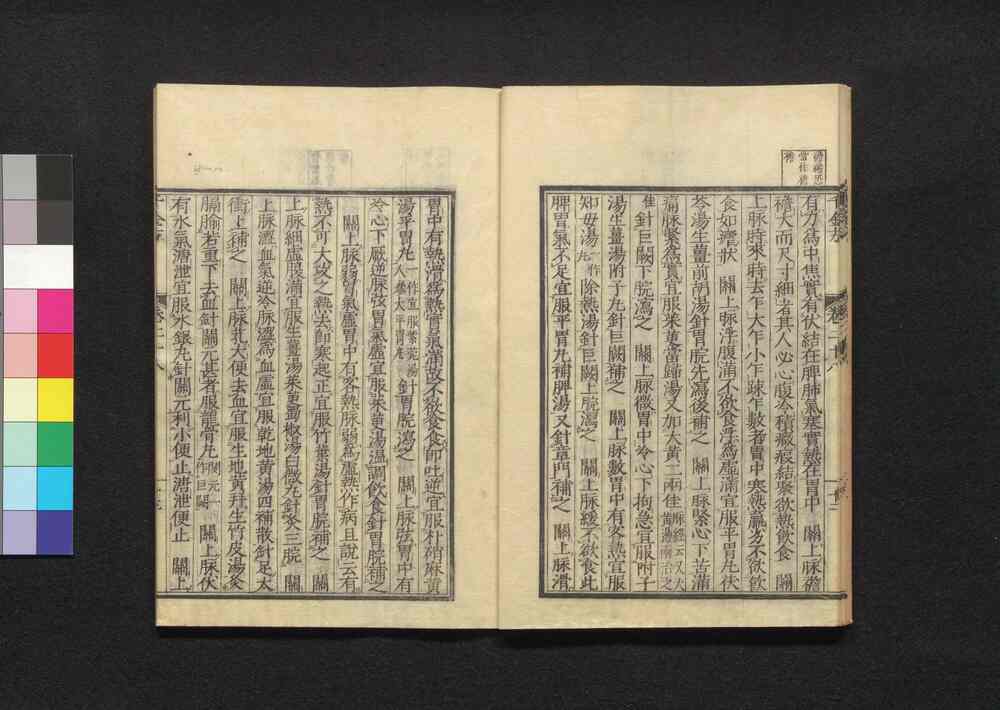 有力為中焦實有伏結在脾肺氣塞實熱在胃中　關上脉襜
襜大而尺寸細者其人必心腹冷積癥瘕結聚欲熱飲食　關
上脉時來時去乍大乍小乍踈乍數者胃中寒熱羸劣不欲飲
食如瘧狀　關上脉浮腹滿不欲食浮為虛滿宜服平胃丸茯
苓湯生薑前胡湯針胃脘先瀉後補之　關上脉緊心下苦滿
痛脉緊為實宜服茱萸當歸湯又加大黃二兩佳脉經云又大黃湯兩治之
佳針巨闕下脘瀉之　關上脉微胃中冷心下拘急宜服附子
湯生薑湯附子丸針巨闕補之　關上脉數胃中有客熱宜服
知母湯一作丸除熱湯針巨闕上脘瀉之　關上脉緩不欲食此
脾胃氣不足宜服平胃丸補脾湯又針章門補之　關上脉滑
胃中有熱滑為熱實氣滿故不欲食食即吐逆宜服朴硝麻黃
湯平胃丸一作宜服紫菀湯人參大平胃丸針胃脘瀉之　關上脉弦胃中有
冷心下厥逆脉弦胃氣虛宜服茱萸湯溫調飲食針胃脘補之
關上脉弱胃氣虛胃中有客熱脉弱為虛熱作病且說云有
熱不可大攻之熱去即寒起正宜服竹葉湯針胃脘補之　關
上脉細虛腹滿宜服生薑湯茱萸蜀椒湯白微丸針灸三脘　關
上脉濇血氣逆冷脉濇為血虛宜服乾地黃湯四補散針足太
衝上補之　關上脉芤大便去血宜服生地黃并生竹皮湯灸
膈腧若重下去血針關元甚者服龍骨丸關元一作巨闕　關上脉伏
有水氣溏泄宜服水銀丸針關元利小便止溏泄便止　關上